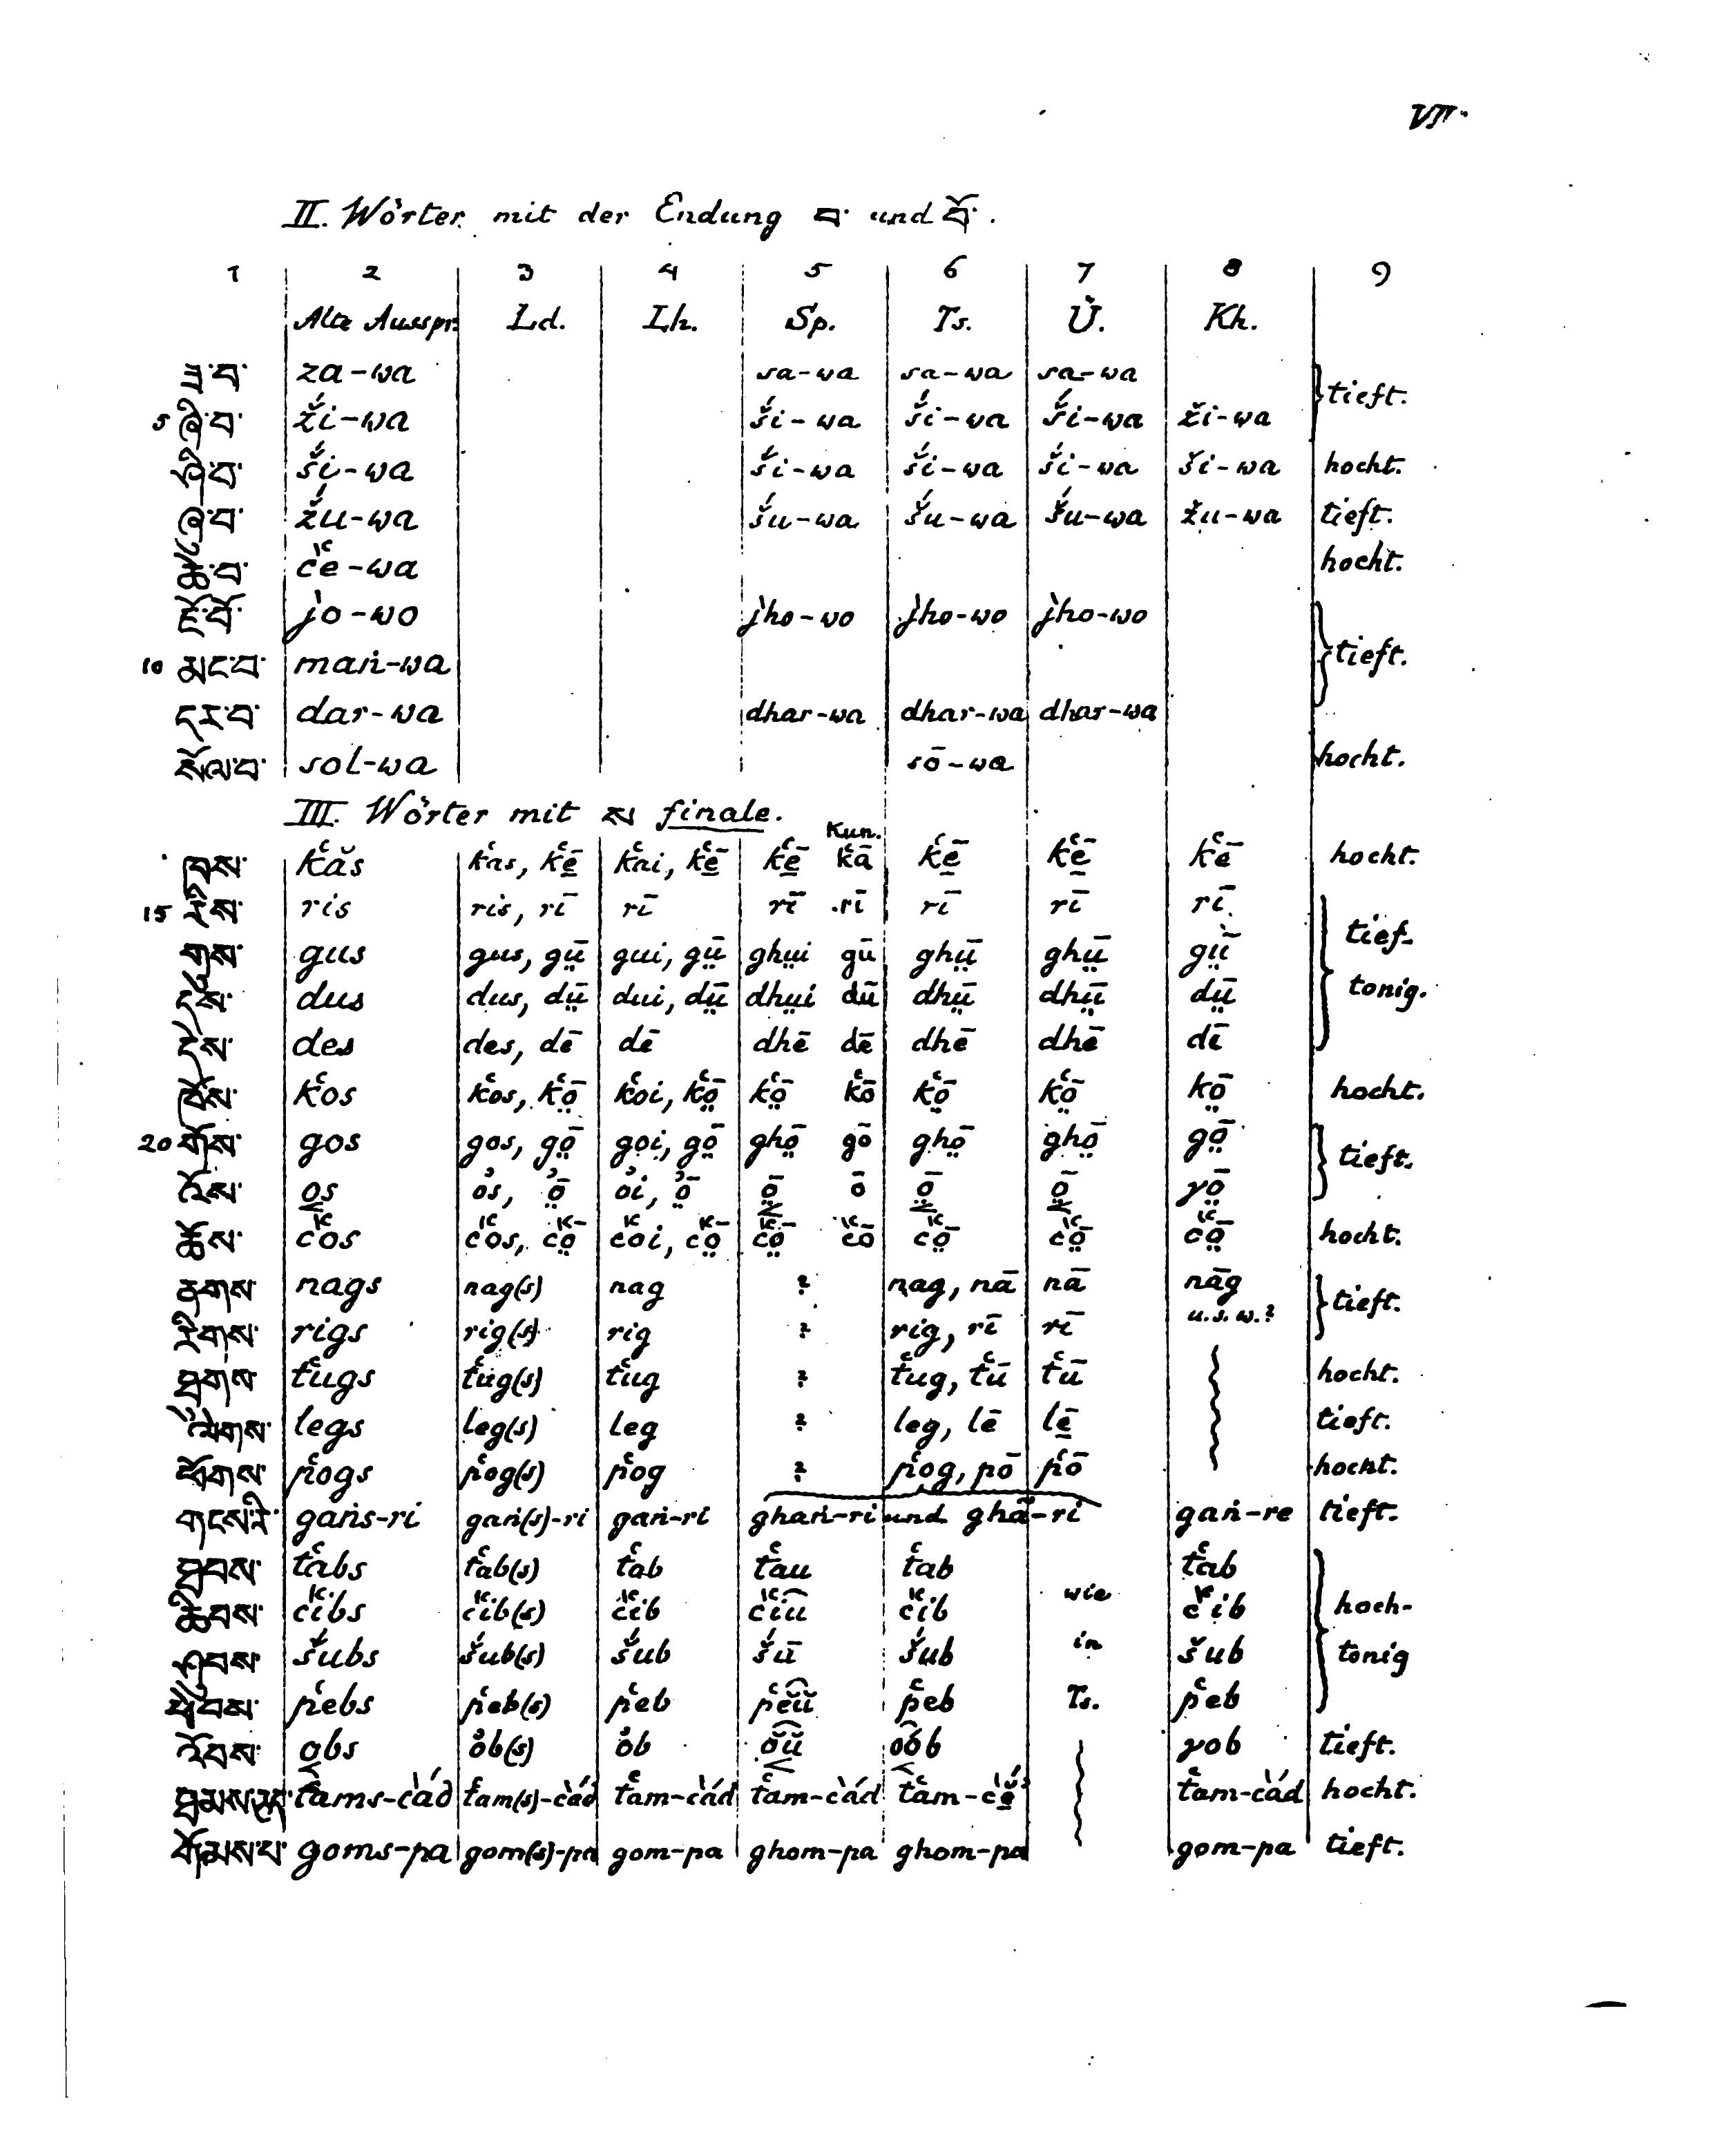 VII.
II. Wörter mit der Endung བ་ und བོ་.
1 2 3 4 5 6 7 8 9
Alte Ausspr. Ld. Lh. Sp. Ts. Ü. Kh.
ཟ་བ་ za-wa sa-wa sa-wa sa-wa } tieft.
5 ཞི་བ་ ž́i-wa š́i-wa š́i-wa š́i-wa ži-wa
ཤི་བ་ š́i-wa š́i-wa š́i-wa š́i-wa ši-wa hocht.
ཞུ་བ་ ž́u-wa š́u-wa š́u-wa š́u-wa žu-wa tieft.
ཆེ་བ་ c̀̔e-wa hocht.
ཇོ་བོ་ j̀o-wo j̀ho-wo j̀ho-wo j̀ho-wo } tieft.
10 མང་བ་ maṅ-wa
དར་བ་ dar-wa dhar-wa dhar-wa dhar-wa
སོལ་བ་ sol-wa sō-wa hocht.
III. Wörter mit ས finale.
Kun.
ཁས་ k̔ăs k̔as, k̔ē̱ k̔ai, k̔ē̱ k̔ē̱ k̔ā k̔ē̱ k̔ē̱ k̔ē hocht.
15 རིས་ ris ris, rī rī rī rī rī rī rī } tief-
གུས་ gus gus, gṳ̄ gui, gṳ̄ ghṳi gū ghṳ̄ ghṳ̄ gṳ̄
དུས་ dus dus, dṳ̄ dui, dṳ̄ dhṳi dū dhṳ̄ dhṳ̄ dṳ̄ tonig.
དེས་ des des, dē dē dhē dē dhē dhē dī
ཁོས་ k̔os k̔os, k̔ō̤ k̔oi, k̔ō̤ k̔ō̤ k̔ō k̔ō̤ k̔ō̤ kō̤ hocht.
20 གོས་ gos gos, gō̤ goi, gō̤ ghō̤ gō ghō̤ ghō̤ gō̤ } tieft.
འོས་ o̱s o̓s, ō̤̓ o̓i, ō̤̓ ō̤ ō ō̤ ō̤ γō̤
ཆོས་ c̀̔os c̀̔os, c̀̔ō̤ c̀̔oi, c̀̔ō̤ c̀̔ō̤ c̀̔ō c̀̔ō̤ c̀̔ō̤ c̀̔ō̤ hocht.
ནགས་ nags nag(s) nag ? nag, nā nā nāg } tieft.
རིགས་ rigs rig(s) rig ? rig, rī rī u.s.w.?
ཐུགས་ t̔ugs t̔ug(s) t̔ug ? t̔ug, t̔ū t̔ū hocht.
ལེགས་ legs leg(s) leg ? leg, lē lē̱ tieft.
ཕོགས་ p̔ogs p̔og(s) p̔og ? p̔og, pō p̔ō hocht.
གངས་རི་ gaṅs-ri gaṅ(s)-ri gaṅ-ri ghaṅ-ri und ghā̃-ri gaṅ-re tieft.
ཐབས་ t̔abs t̔ab(s) t̔ab t̔au t̔ab t̔ab
ཆིབས་ c̀̔ibs c̀̔ib(s) c̀̔ib c̀̔iu c̀̔ib wie c̀̔ib } hoch-
ཤུབས་ š́ubs š́ub(s) š́ub š́ū š́ub in šub tonig
ཕེབས་ p̔ebs p̔eb(s) p̔eb p̔ĕŭ p̔eb Ts. p̔eb
འོབས་ o̱bs o̓b(s) o̓b ŏŭ ob γob tieft.
ཐམས་ཅད་ t̔ams-c̀ád t̔am(s)-c̀ád t̔am-c̀ád t̔am-c̀ád t̔am-c̀é̱ t̔am-c̀ád hocht.
གོམས་པ་ goms-pa gom(s)-pa gom-pa ghom-pa ghom-pa gom-pa tieft.